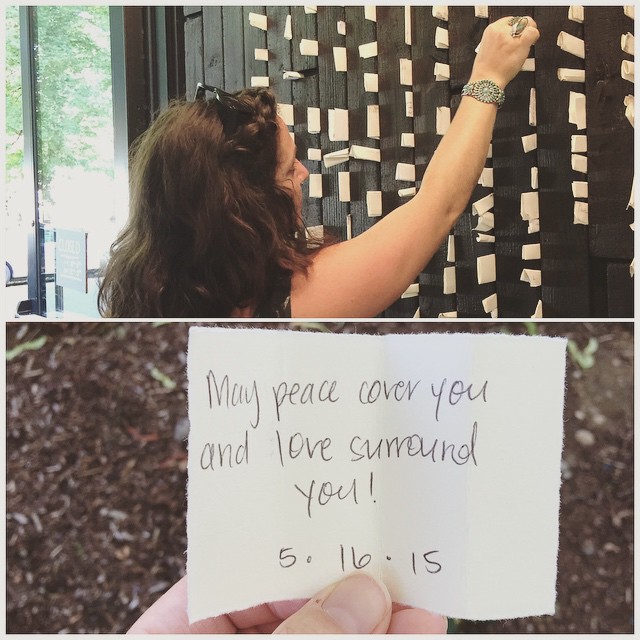 May peace cover you
and love surround
you!
5. 16. 15